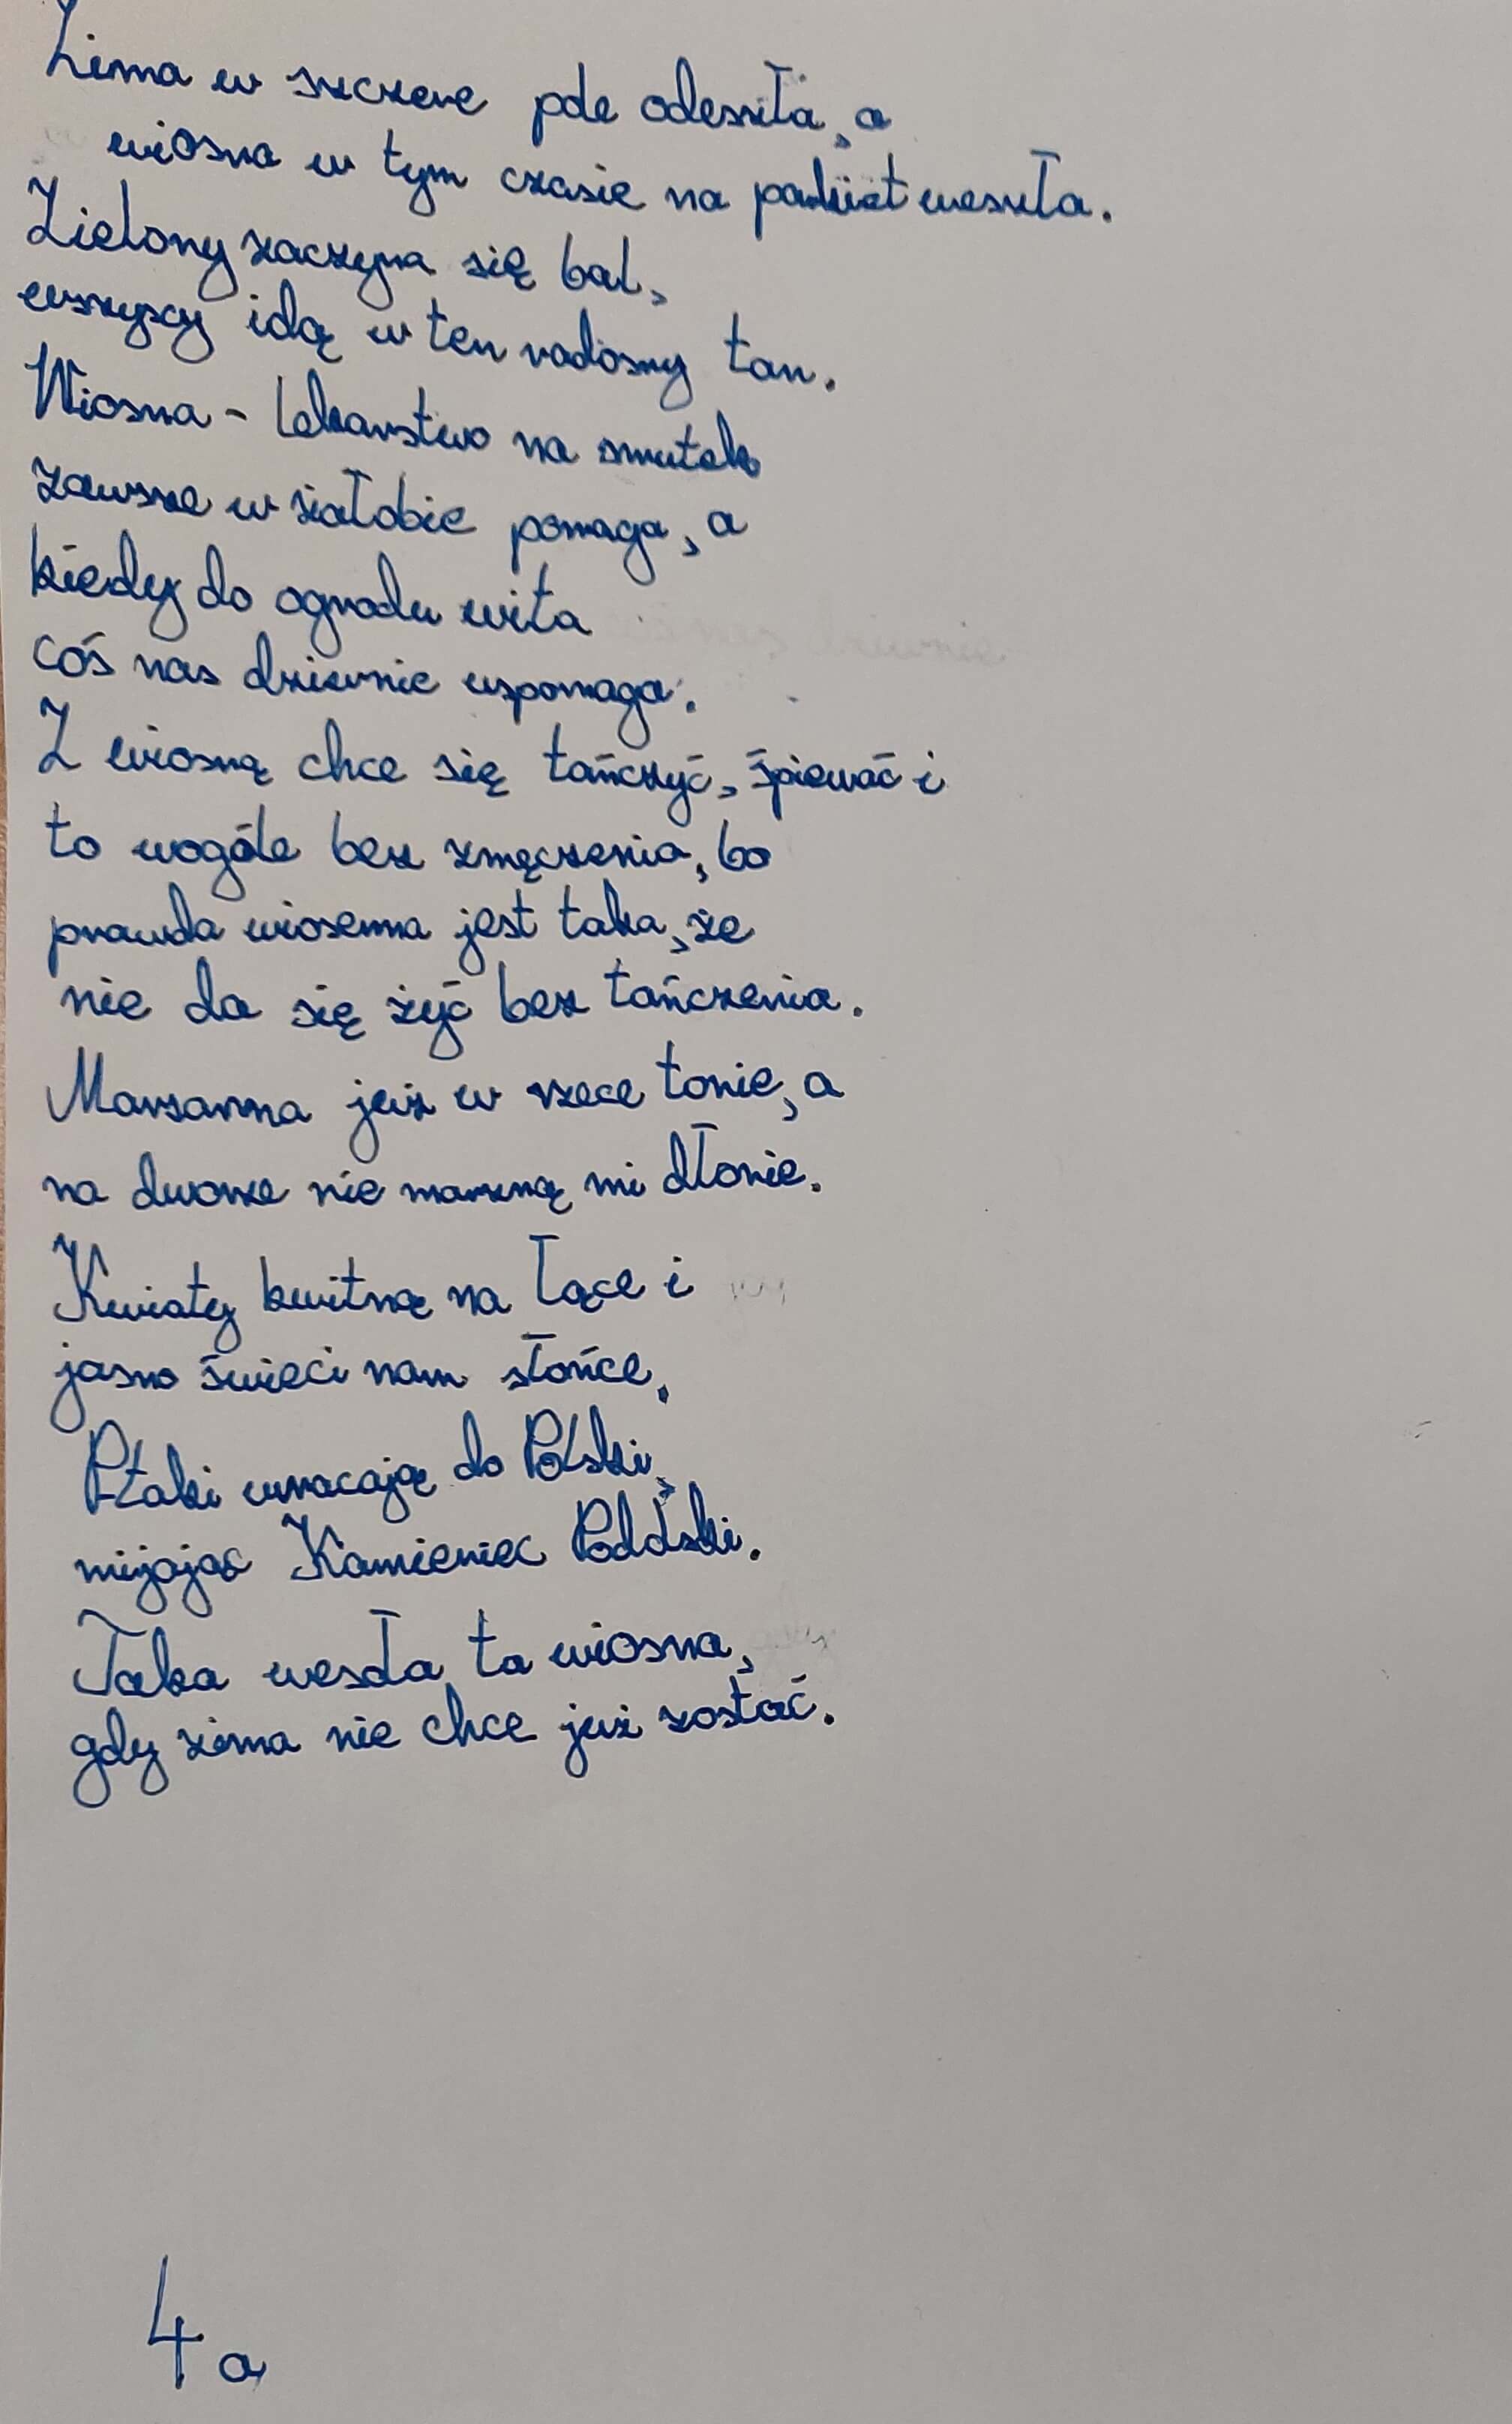 Zima w szczere pole odeszła, a
wiosna w tym czasie na parkiet weszła.
Zielony zaczyna się bal,
wszyscy idą w ten radosny tan.
Wiosna - lekarstwo na smutek
zawsze w żałobie pomaga, a
kiedy do ogrodu wita
coś nas dziwnie wspomaga.
Z wiosną chce się tańczyć, śpiewać i
to wogóle bez zmęczenia, bo
prawda wiosenna jest taka, że
nie da się żyć bez tańczenia.
Marzanna już w rzece tonie, a
na dworze nie marzną mi dłonie.
Kwiaty kwitną na łące i
jasno świeci nam słońce.
Ptaki wracają do Polski,
mijając Kamieniec Podolski.
Taka wesoła ta wiosna,
gdy zima nie chce już zostać.
4a